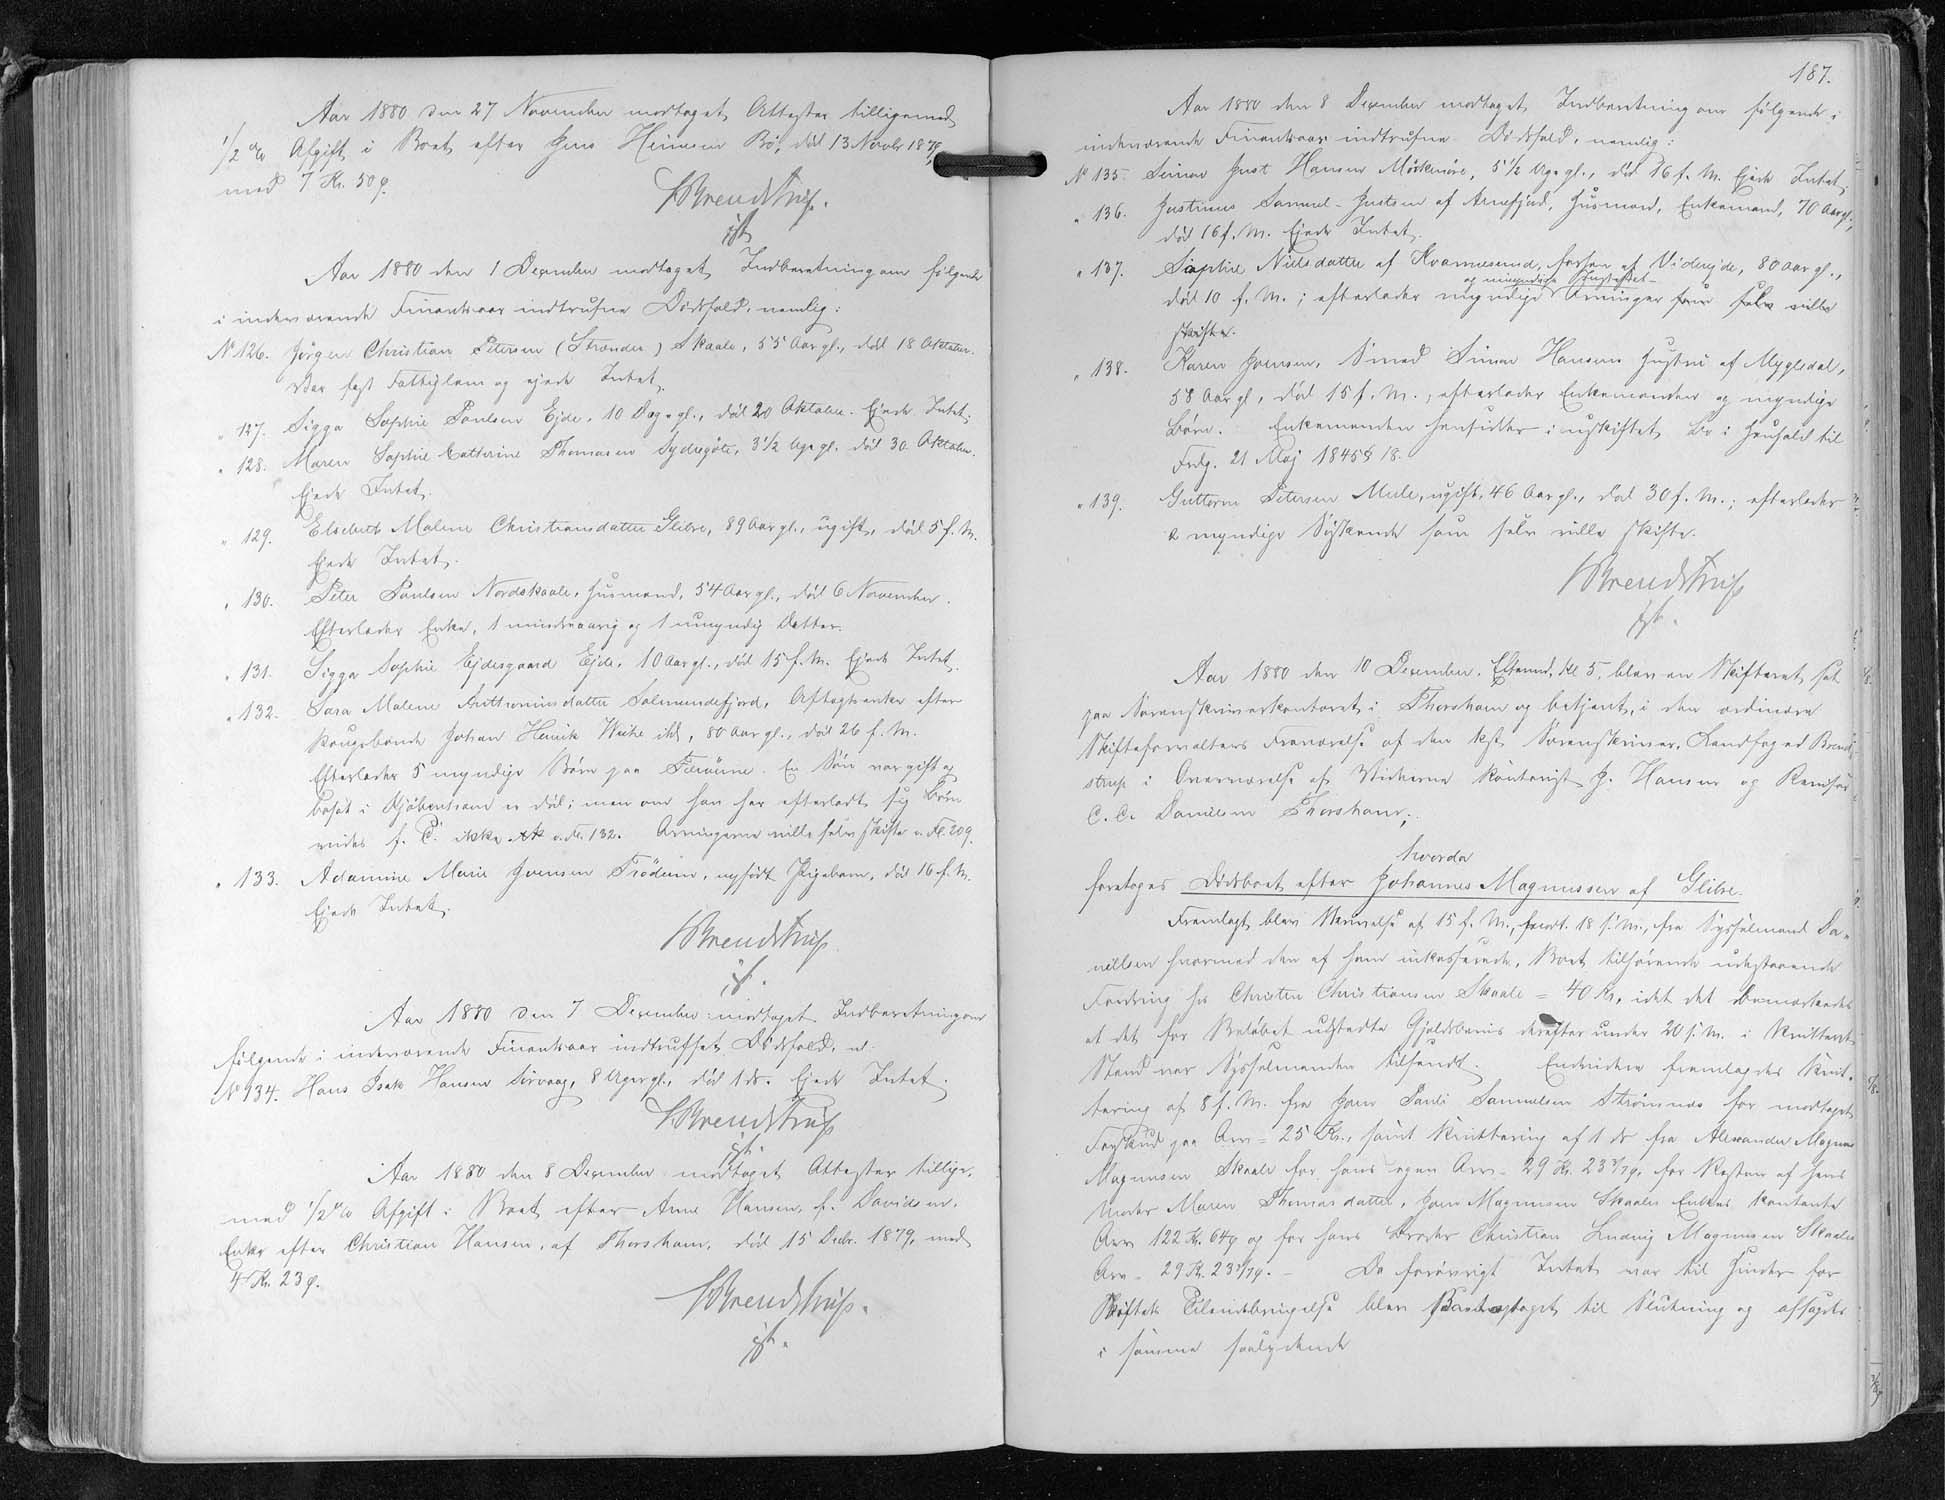 Aar 1880 den 27 November modtaget Attester tilligemed
1/2 % Afgift i Boet efter Jens Heinesen Bö, död 13 Novbr 1879,
med 7 Kr. 50 ø.
SBrendstrup.
cst.
Aar 1880 den 1 December modtaget Indberetning om følgende
i indeværende Finantsaar indtrufne Dödsfald, nemlig:
No 126. Jörgen Christian Petersen (Strænder) Skaale, 55 Aar gl., död 18 Oktober.
Var fast Fattiglem og ejede Intet.
" 127. Sigga Sophie Poulsen Ejde, 10 Dage gl., död 20 Oktober. Ejede Intet.
" 128. Maren Sophie Cathrine Thomasen Sydregöte, 3 1/2 Uge gl. död 30 Oktober.
Ejede Intet.
" 129. Elsebeth Malene Christiansdatter Glibre, 89 Aar gl., ugift, död 5 f. M.
Ejede Intet.
" 130. Peter Poulsen Nordskaale, Husmand, 54 Aar gl., död 6 November.
Efterlader Enke, 1 mindreaarig og 1 umyndig Datter.
" 131. Sigga Sophie Ejdesgaard Ejde, 10 Aar gl., död 15 f. M. Ejede Intet.
" 132. Sara Malene Guttormsdatter Salmundefjord, Aftægtsenke efter
Kongsbonde Johan Henrik Weihe ibd, 80 Aar gl., död 26 f. M.
Efterlader 5 myndige Börn paa Færöerne. En Sön var gift og
bosat i Kjöbenhavn er död; men om han har efterladt sig Börn
vides f. T. ikke. Arvingerne ville selv skifte v. Fol. 209.
" 133. Adamine Marie Joensen Frödum, nyfödt Pigebarn, död 16 f. M.
Ejede Intet.
SBrendstrup
cst.
Aar 1880 den 7 December modtaget Indberetning om
følgende i indeværende Finantsaar indtruffet Dödsfald, nl.
No 134. Hans Isak Hansen Sörvaag, 8 Uger gl., död 1 ds. Ejede Intet.
SBrendstrup
cst.
Aar 1880 den 8 December modtaget Attester tillige-
med 1/2 % Afgift i Boet efter Anne Hansen, f. Davidsen,
Enke efter Christian Hansen, af Thorshavn, död 15 Decbr. 1879, med
4 Kr. 23 ø.
SBrendstrup.
cst.
187.
Aar 1880 den 8 December modtaget Indberetning om følgende i
indeværende Finantsaar indtrufne Dödsfald, nemlig:
No 135. Simon Just Hansen Mörkenöre, 5 1/2 Uge gl., död 16 f. M. Ejede Intet.
" 136. Justinus Samuel Justsen af Arnefjord, Husmand, Enkemand, 70 Aar gl.,
död 16 f. M. Ejede Intet.
" 137. Sophie Nielsdatter af Kvannesund, forhen af Videreide, 80 Aar gl.,
og
död 10 f. M.; efterlader myndige Arvinger som selv ville
skifte.
" 138. Karen Joensen, Smed Simon Hansens Hustru af Mygledal,
58 Aar gl., död 15 f. M., efterlader Enkemanden og myndige
Börn. Enkemanden hensidder i uskiftet Bo i Henhold til
Frdg. 21 Maj 1845 § 18.
" 139. Guttorm Petersen Mule, ugift, 46 Aar gl., död 30 f. M.; efterlader
2 myndige Söskende som selv ville skifte.
SBrendstrup
cst.
Aar 1880 den 10 December, Eftermd. Kl 5, blev en Skifteret sat
paa Sorenskriverkontoret i Thorshavn og betjent, i den ordinære
Skifteforvalters Fraværelse af den kst. Sorenskriver, Landfoged Brend-
strup i Overværelse af Vidnerne Kontorist J. Hansen og
C. C. Danielsen Thorshavn;
hvorda
foretoges Dödsboet efter Johannes Magnussen af Glibre.
Fremlagt blev Skrivelse af 15 f. M., 18 s. M., fra Sysselmand Da-
nielsen hvormed den af ham inkasserede, Boet tilhørende udestaaende
Fordring hos Christen Christiansen Skaale = 40 Kr., idet det bemærkedes
at det for Belöbet udstedte Gjældsbevis derefter under 20 s. M. i kvitteret
Stand var Sysselmanden tilsendt. Endvidere fremlagdes Kvit-
tering af 8 f. M. fra Joen Pauli Samuelsen Strömnæs for modtaget
Forskud paa Arv = 25 Kr., samt Kvittering af 1 ds fra Alexander Magnus
Magnussen Skaale for hans egen Arv = 29 Kr. 23 ø, for Resten af hans
Moder Maren Thomasdatter, Joen Magnussen Skaales Enkes, kontante
Arv 122 Kr. 64 ø og for hans Broder Christian Ludvig Magnussen Skaales
Arv = 29 Kr. 23 ø. – Da forövrigt Intet var til Hinder for
Skiftets Tilendebringelse blev Boet optaget til Slutning og afsagdes
i samme saalydende